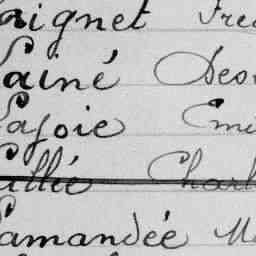 aignet Fre
Lainé Des
Lajoie Emi
Lallée Charl
Lamandée M